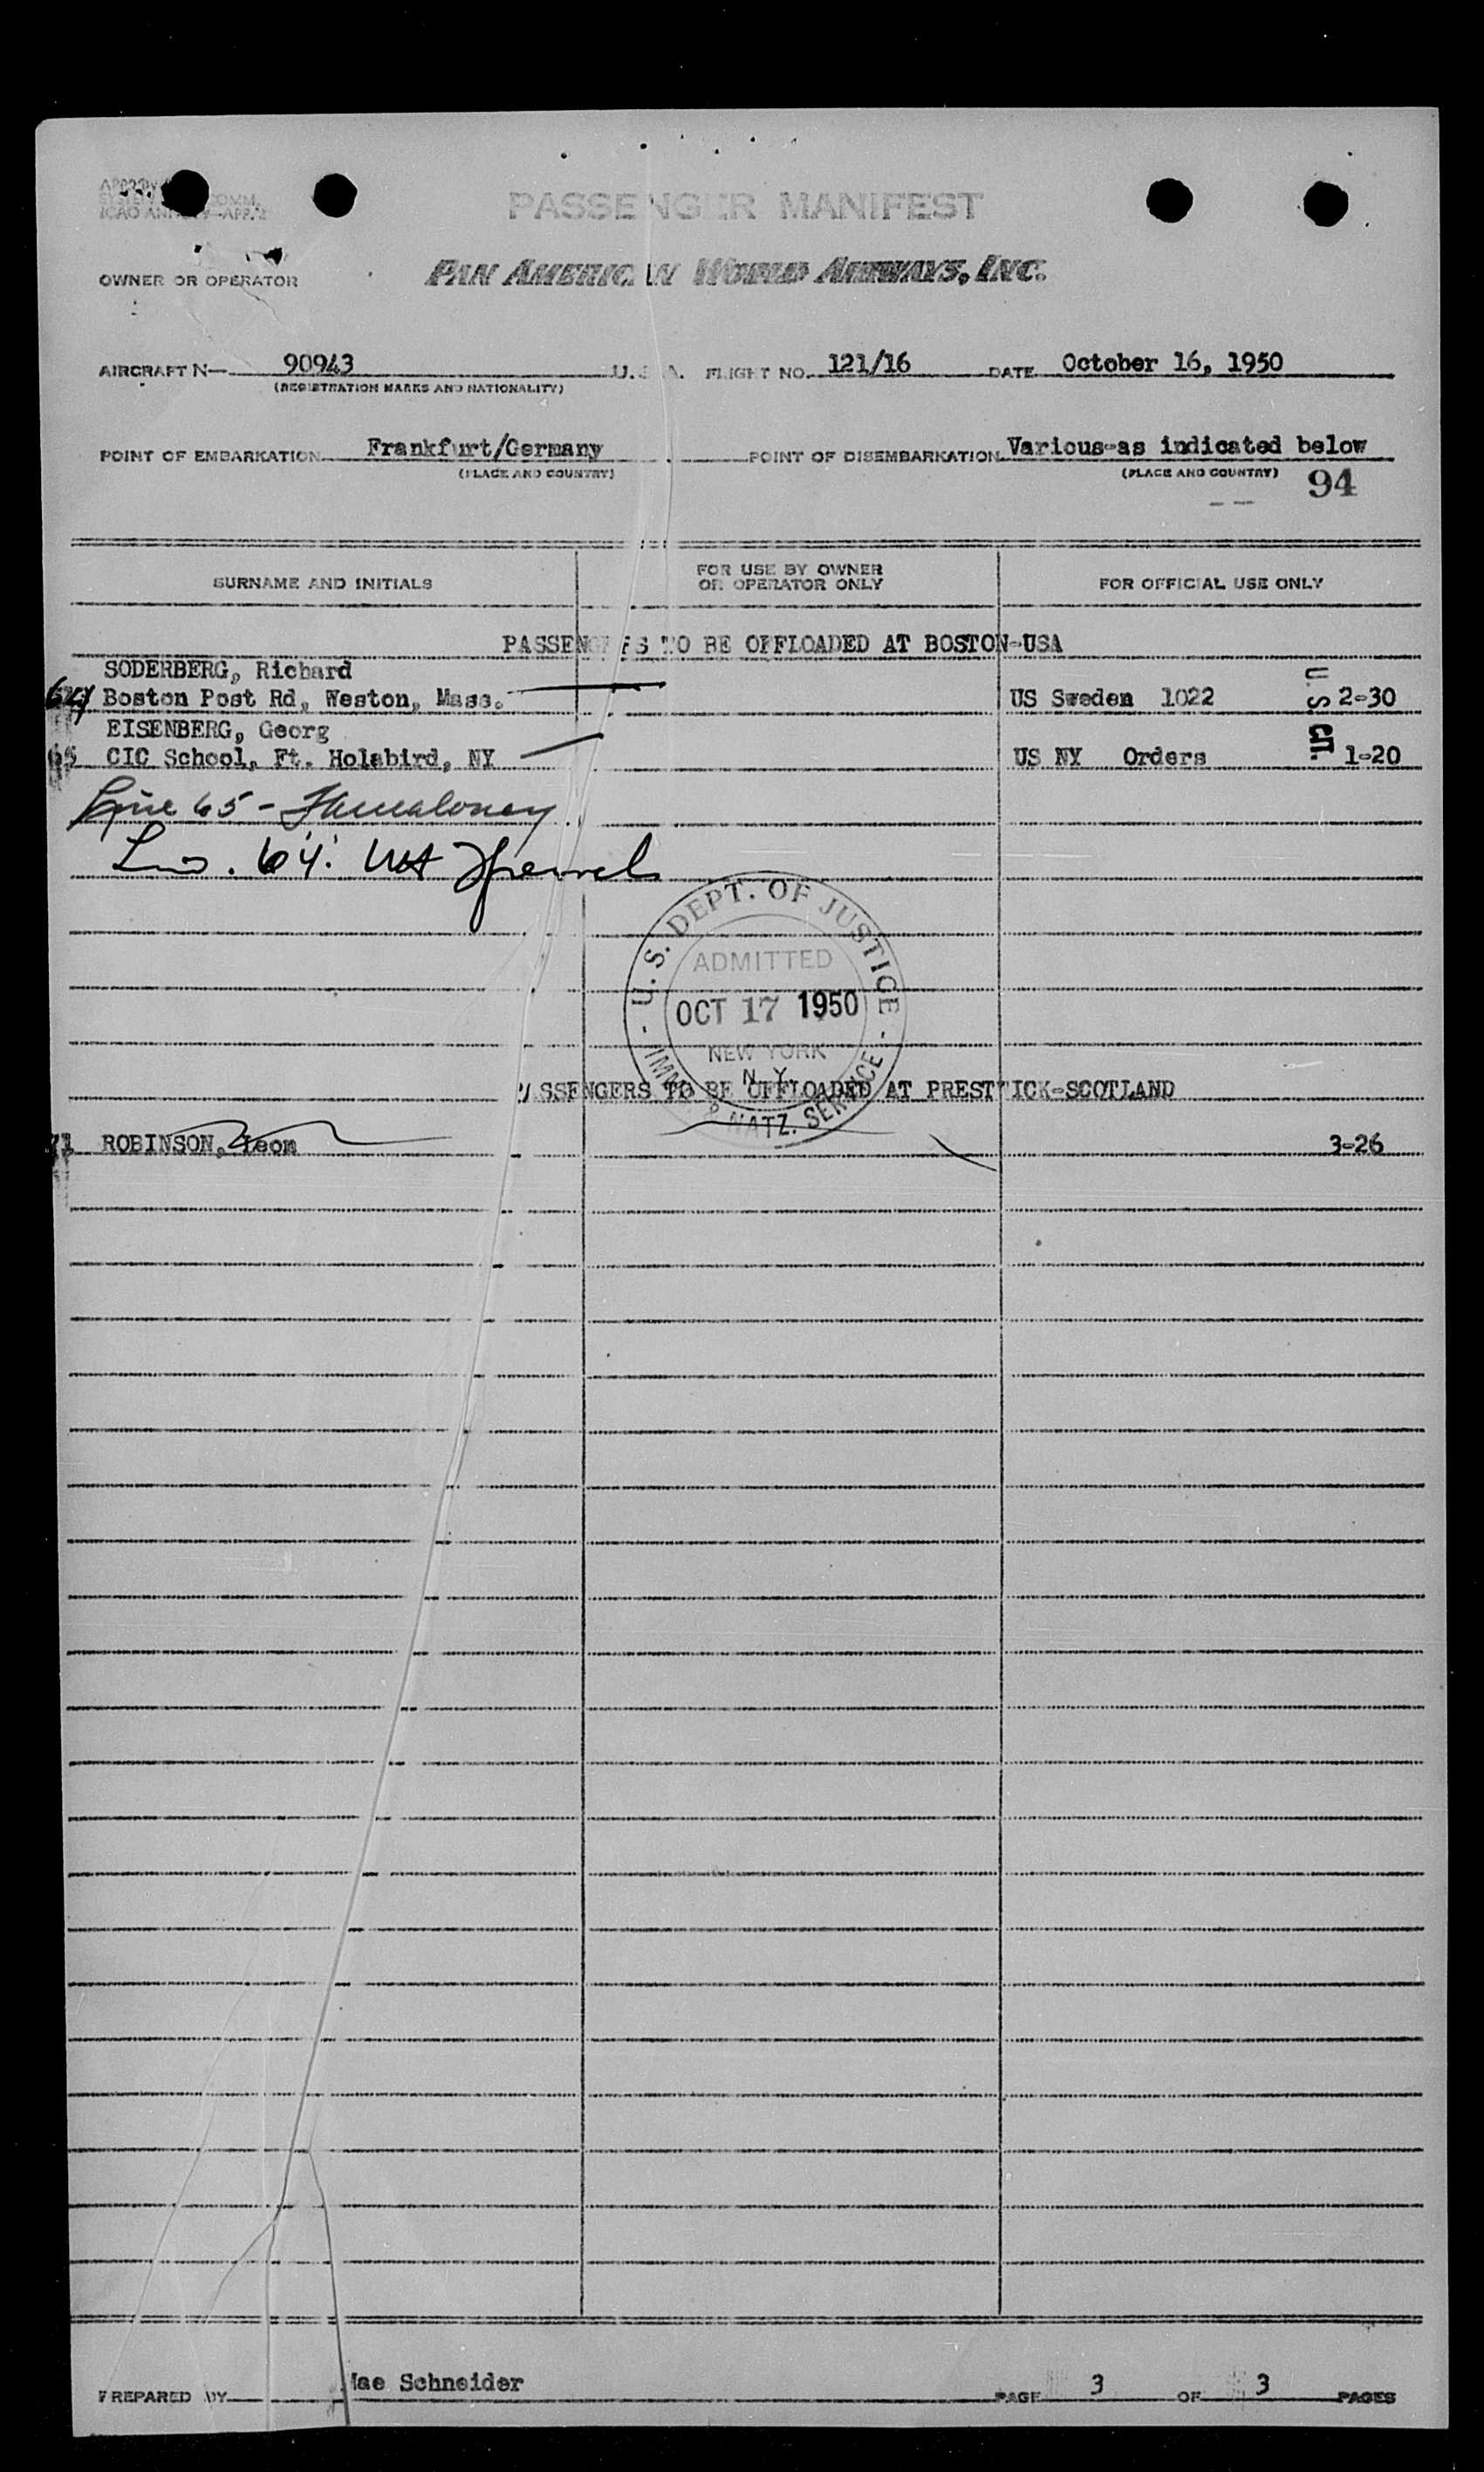 PASSENGER MANIFEST
OWNER OR OPERATOR PAN AMERICAN WORLD AIRWAYS, INC.
AIRCRAFT N- 90943 U.S.A. FLIGHT NO. 121/16 DATE October 16, 1950
(REGISTRATION MARKS AND NATIONALITY)
POINT OF EMBARKATION Frankfurt/Germany POINT OF DISEMBARKATION Various-as indicated below
(PLACE AND COUNTRY) (PLACE AND COUNTRY) 94
SURNAME AND INITIALS FOR USE BY OWNER OR OPERATOR ONLY FOR OFFICIAL USE ONLY
PASSENGERS TO BE OFFLOADED AT BOSTON-USA
SODERBERG, Richard
64 Boston Post Rd, Weston, Mass. US Sweden 1022 U.S. 2-30
EISENBERG, Georg
65 CIC School, Ft. Holabird, NY US NY Orders CIT. 1-20
Line 65 -
64
U.S. DEPT. OF JUSTICE
ADMITTED
OCT 17 1950
NEW YORK
N.Y.
IMM. & NATZ. SERVICE
PASSENGERS TO BE OFFLOADED AT PRESTWICK-SCOTLAND
ROBINSON, Leon 3-26
PREPARED BY Mae Schneider PAGE 3 OF 3 PAGES